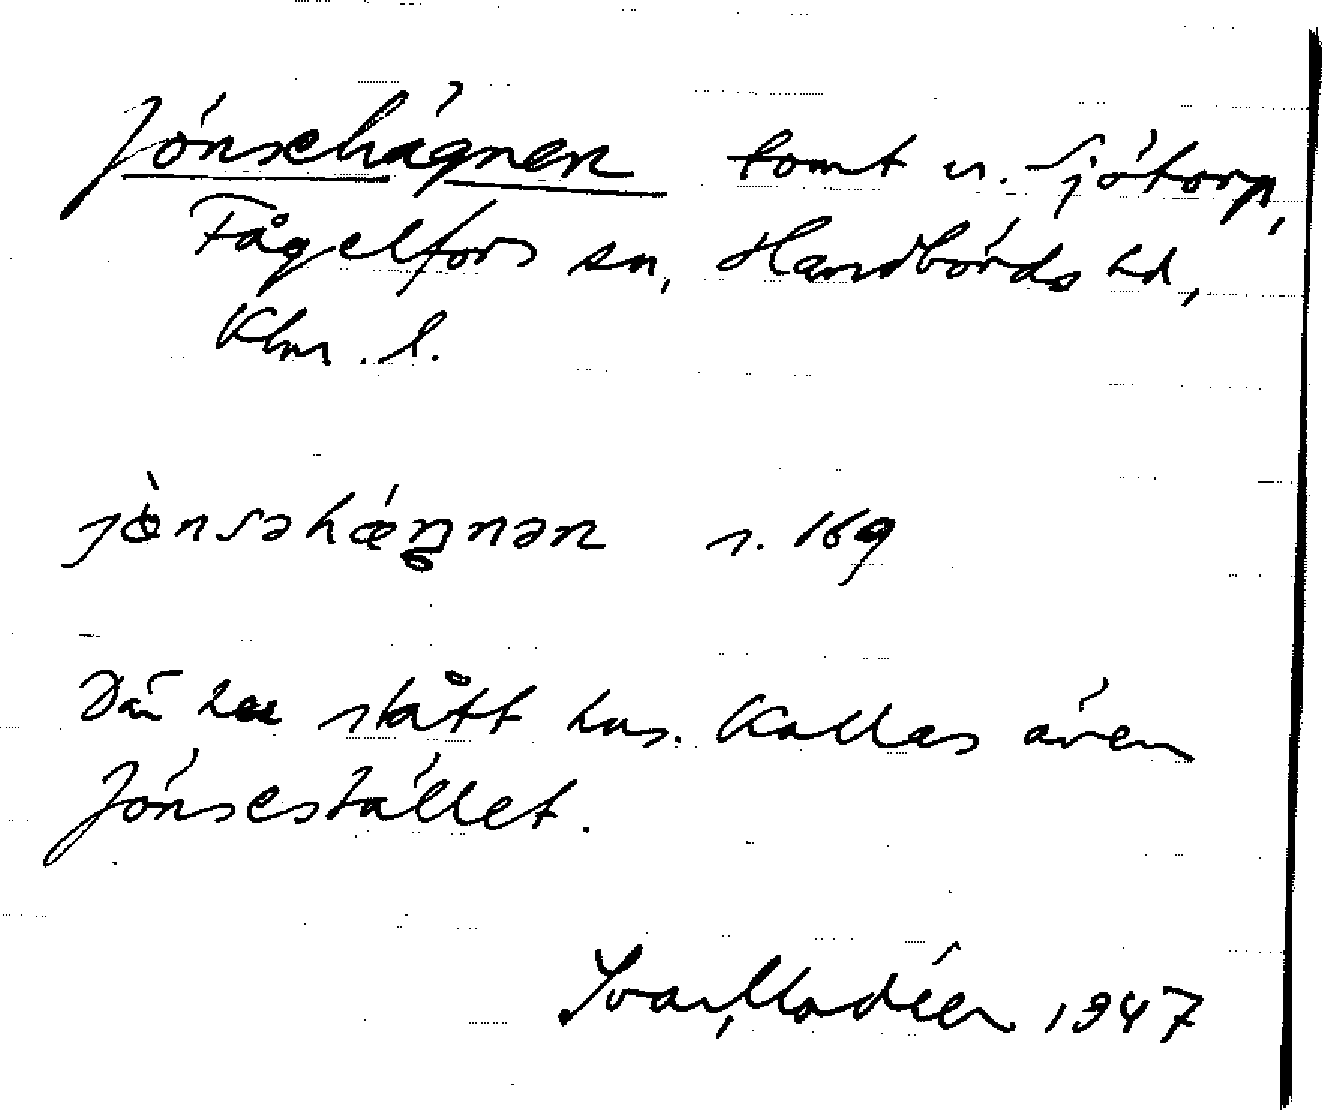 Jönsehägnen tomt u. Sjötorp,
Fågelfors sn, Handbörds hd,
Klm. l.
jɵ̀nsəhǽŋnən s. 169
Där har stått hus. Kallas även
Jönsestället.
Ivar Modéer 1947